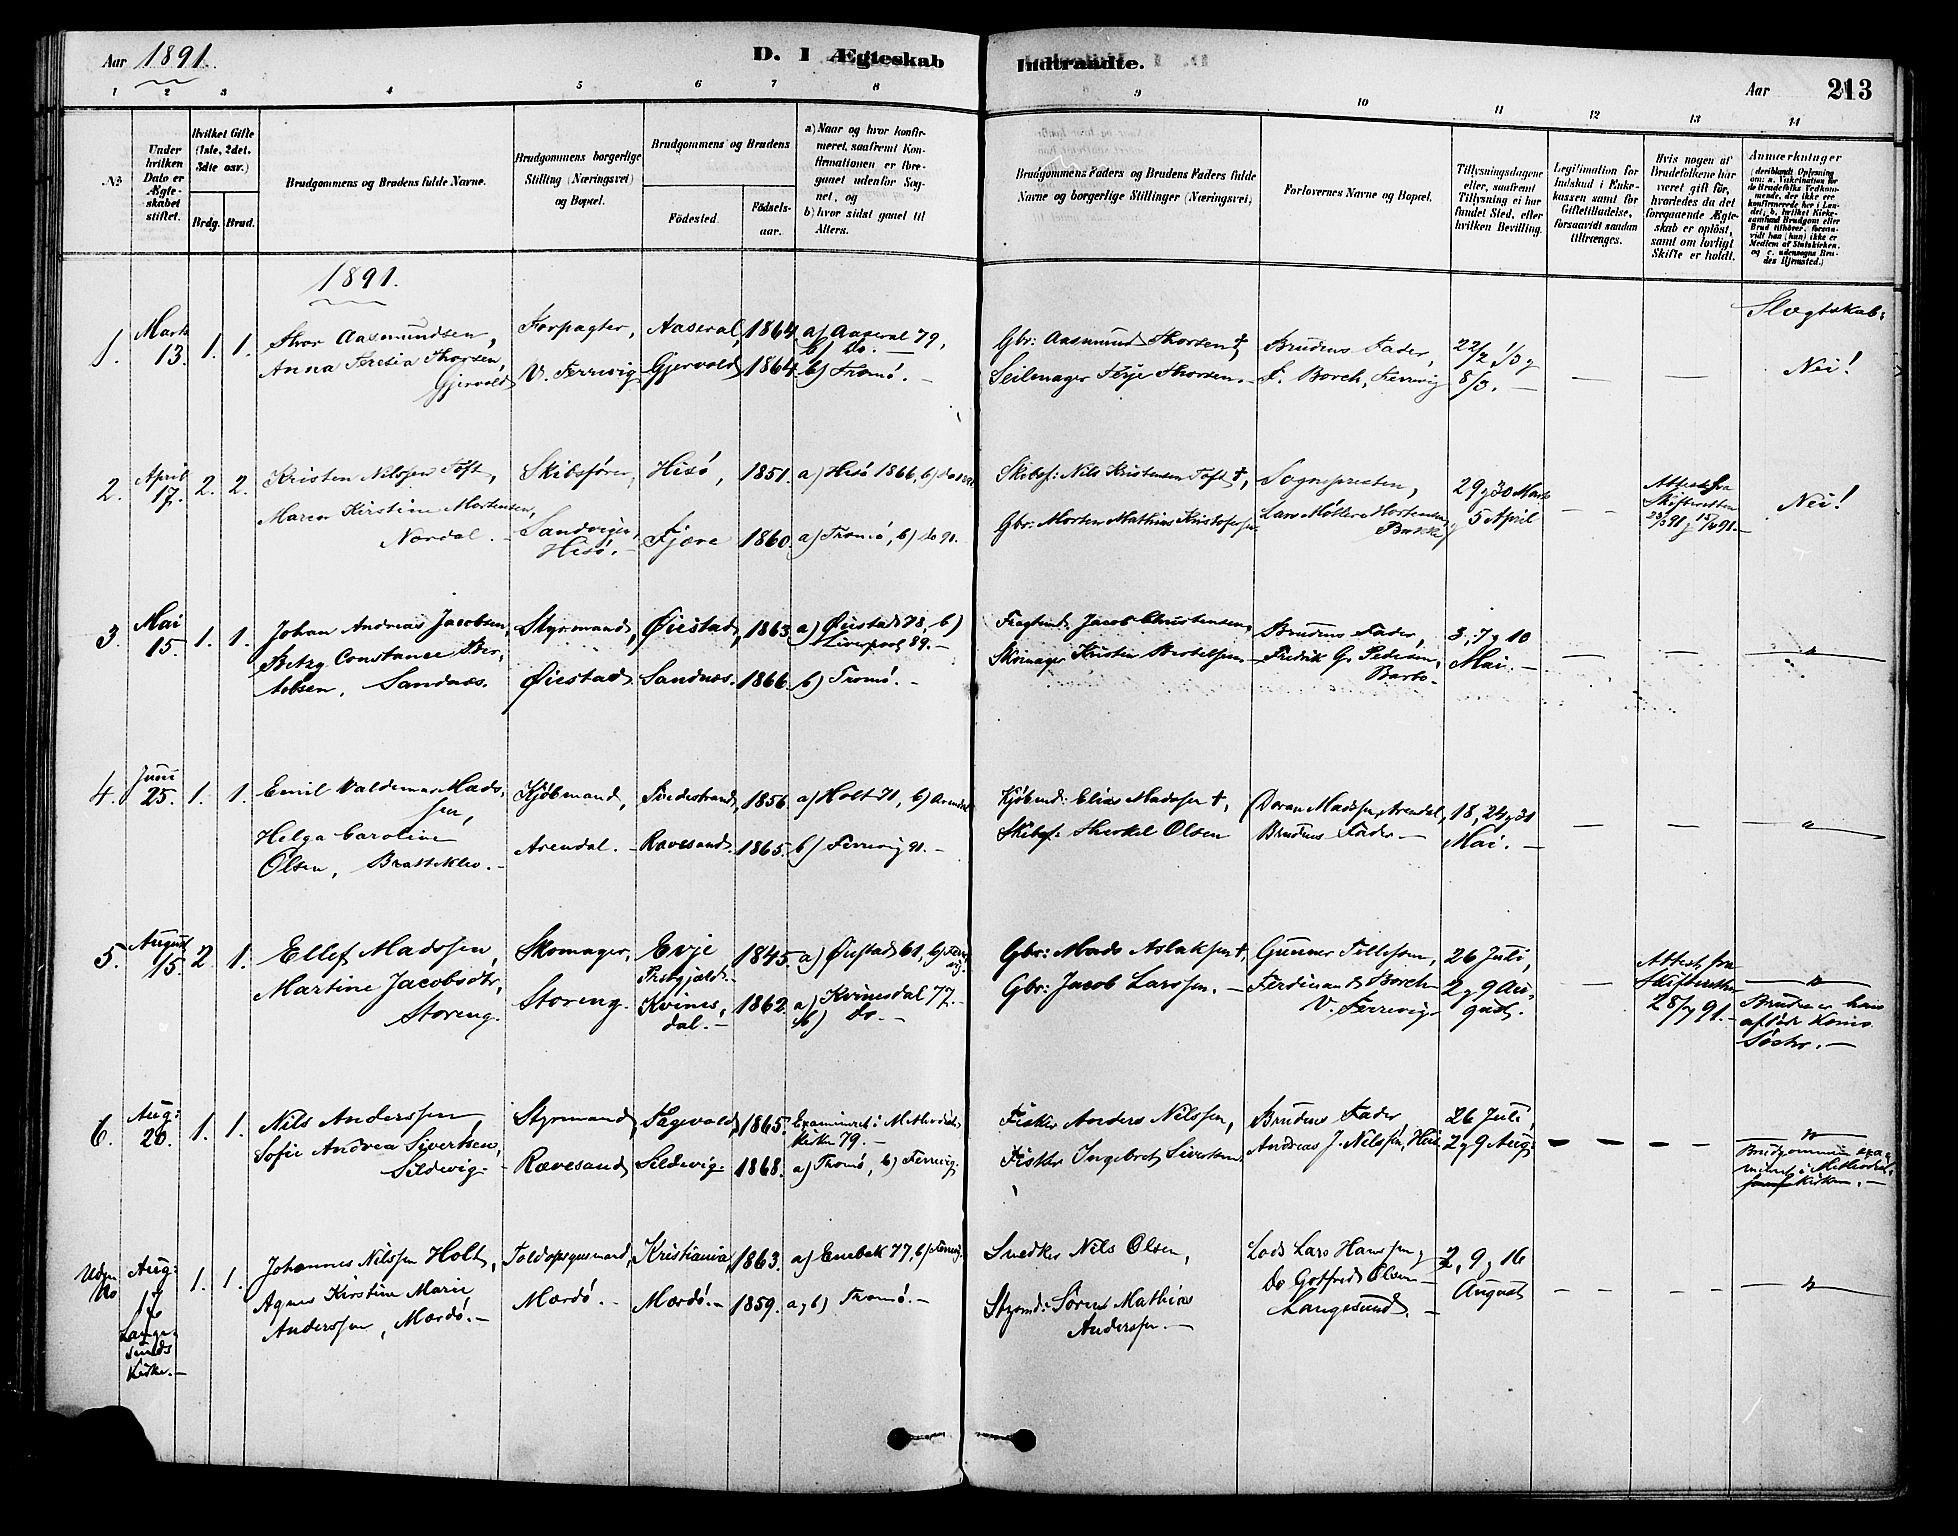 Aar 1891.
D. I Ægteskab Indtraadte.
Aar 213
1 2 3 4 5 6 7 8 9 10 11 12 13 14
No
Under hvilken Dato er Ægteskabet stiftet.
Hvilket Gifte (1ste, 2det, 3die osv.)
Brdg. Brud.
Brudgommens og Brudens fulde Navne.
Brudgommens borgerlige Stilling (Næringsvei) og Bopæl.
Brudgommens og Brudens
Födested. Födsels-aar.
a) Naar og hvor konfirmeret, saafremt Konfirmationen er foregaaet udenfor Sognet, og
b) hvor sidst gaaet til Alters.
Brudgommens Faders og Brudens Faders fulde Navne og borgerlige Stillinger (Næringsvei)
Forlovernes Navne og Bopæl.
Tillysningsdagene eller, saafremt Tillysning ei har fundet Sted, efter hvilken Bevilling.
Legitimation for Indskud i Enkekassen samt for Giftetilladelse, forsaavidt saadan tiltrænges.
Hvis nogen af Brudefolkene har været gift før, hvorledes da det foregaaende Ægteskab er oplöst, samt om lovligt Skifte er holdt.
Anmærkninger
1891.
1. Marts 13. 1. 1.
Aasmundsen,
Anna Teresia Thorsen, Gjervold
Forpagter, V. Ferrevig
Aaseral, 1864. a) Aaseral 79, b) Do. —
Gjervold 1864. b) Tromö. —
Gbr: Aasmund Thorsen †,
Seilmager Terje Thorsen. —
Brudens Fader,
F. Borch, Ferrevig
22/2, 1/3 g 8/3. —
— —
Slægtskab: Nei!
2. April 17. 2. 2.
Kristen Nilssen Toft,
Maren Kirstine Mortensen, Nærdal. —
Skibsfører, Sandvigen, Hisö. —
Hisö, 1851. a) Hisö 1866, b) do
Fjære 1860. a) Tromö, b) Do 90.
Skibsf: Nils Kristensen Toft †,
Gbr: Morten Mathias Kristofersen
Sognepresten,
Lars Möller Mortensen, Bakke
29 g 30 Marts g 5 April
— —
Attest fra Skifteretten
Nei!
3. Mai 15. 1. 1.
Johan Andreas Jacobsen,
Betzy Constance Bertelsen, Sandnæs.
Styrmand, Øiestad
Øiestad, 1863. a) Øiestad 78, b) Liverpool 89. —
Sandnæs. 1866. b) Tromö. —
Jacob Christensen,
Skomager Kristen Bertelsen —
Brudens Fader,
Fredrik G. Pedersen, Barbo.
3., 7 g 10 Mai. —
— —
4. Juni 25. 1. 1.
Emil Valdemar Madssen,
Helga Caroline Olsen, Bratteklev. —
Kjöbmand, Arendal. —
Tvedestrand, 1856. a) Holt 71, b) Arendal
Rævesand. 1865. b) Ferrevig 91. —
Kjöbmd: Elias Madssen †,
Skibsf: Therkel Olsen
Madssen, Arendal,
Brudens Fader —
18, 24 g 31 Mai. —
— —
5. August 15. 2. 1.
Ellef Madssen,
Martine Jacobsdtr, Storeng.
Skomager, Storeng.
Evje Prstgjæld. 1845. a) Øiestad 61, b) Ferrevig.
Kvinesdal. — 1862. a) Kvinesdal 77. — b) Do. —
Gbr: Mads Aslaksen †,
Gbr: Jacob Larssen. —
Gunner Tellefsen,
Ferdinand Borch V. Ferrevig
26 Juli, 2 g 9 August.
—
Attest fra Skifteretten 28/7 91. —
Bruden er hans afdöde Kones Söster. —
6. Aug: 20. 1. 1.
Nils Anderssen,
Sofie Andrea Sivertsen, Sildevig. —
Styrmand, Rævesand
1865. Examineret i Methodistkirken 79. —
Sildevig. 1868. a) Tromö, b) Ferrevig.
Fisker Anders Nilssen,
Fisker Ingebret Sivertsen.
Brudens Fader
Andreas J. Nilssen,
26 Juli, 2 g 9 Aug:
— — — —
Brudgommen examineret i Methodistkirken. —
Uden No Aug: Langesunds Kirke. — 1. 1.
Johannes Nilssen Holt,
Agnes Kirstine Marie Anderssen, Mærdö. —
Toldopsynsmand, Mærdö. —
Kristiania, 1863. a) Enebak 77, b) Ferrevig.
Mærdö. — 1859. a g b) Tromö. —
Snedker Nils Olsen,
Styrmd: Sören Mathias Anderssen. —
Lods Lars Hanssen g
Do Gotfred Olsen — Langesund. —
2, 9 g 16 August
— — — —